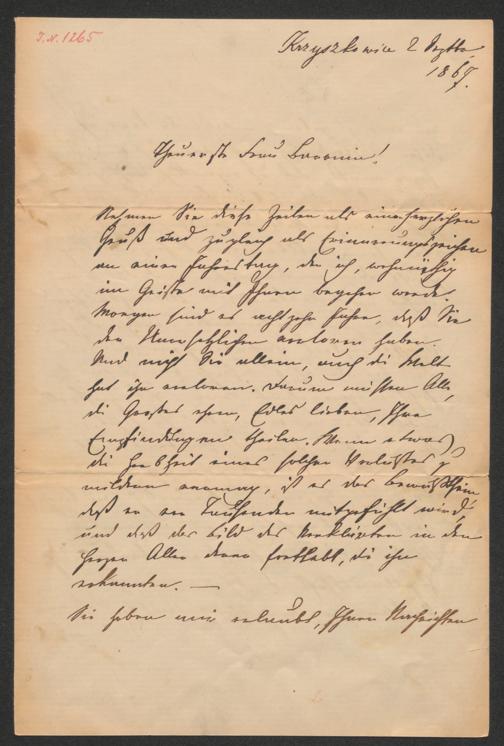 I.N. 1265
Krzyszkowice 2 Septbr
1867.
Theuerste Frau Baronin!
Nehmen Sie diese Zeilen als einen herzlichen
Gruß und zugleich als Erinnerungszeichen
an einen Jahrestag, den ich, wehmüthig
im Geiste mit Ihnen begehen werde.
Morgen sind es achtzehn Jahre, daß Sie
den Unersetzlichen verloren haben.
Und nicht Sie allein, auch die Welt
hat ihn verloren. Darum müssen Alle,
die Großes ehren, Edles lieben, Ihre
Empfindungen theilen. Wenn etwas
die Herbheit eines solchen Verlustes zu
mildern vermag, ist es das Bewußtsein
daß er von Tausenden mitgefühlt wird,
und daß das Bild des Verklärten in den
Herzen Aller derer fortlebt, die ihn
erkannten. —
Sie haben mir erlaubt, Ihnen Nachrichten